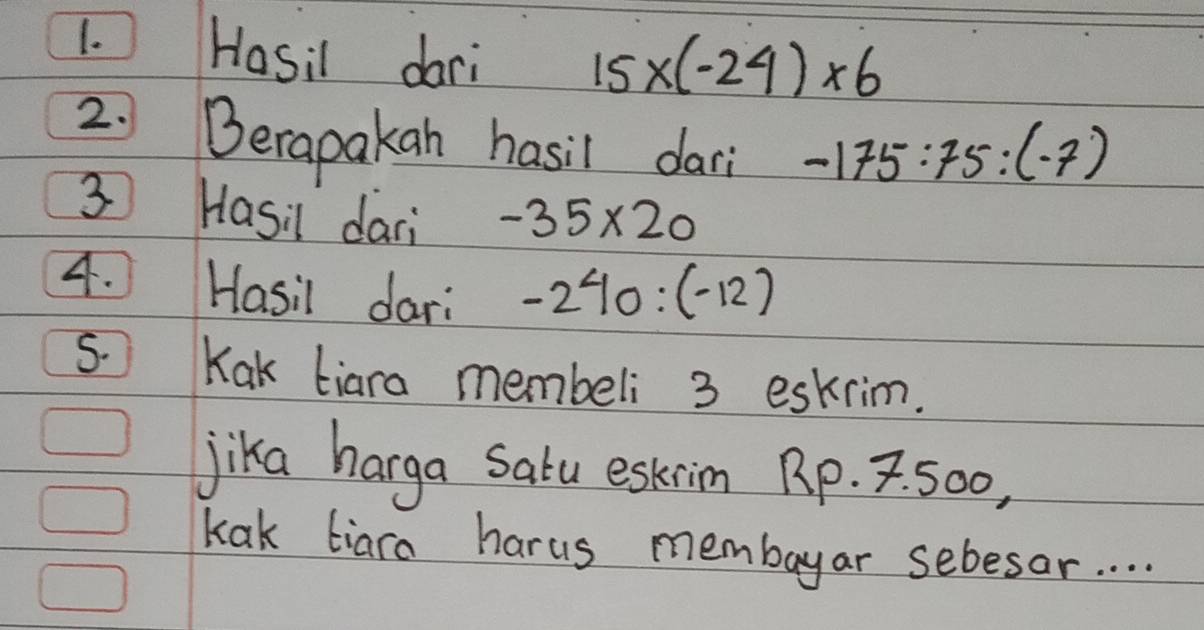 1. Hasil dari 15x(-24)x6
2. Berapakah hasil dari -175:75:(-7)
3. Hasil dari -35x20
4. Hasil dari -240:(-12)
5. Kak tiara membeli 3 eskrim.
jika harga satu eskrim Rp. 7.500,
kak tiara harus membayar sebesar....